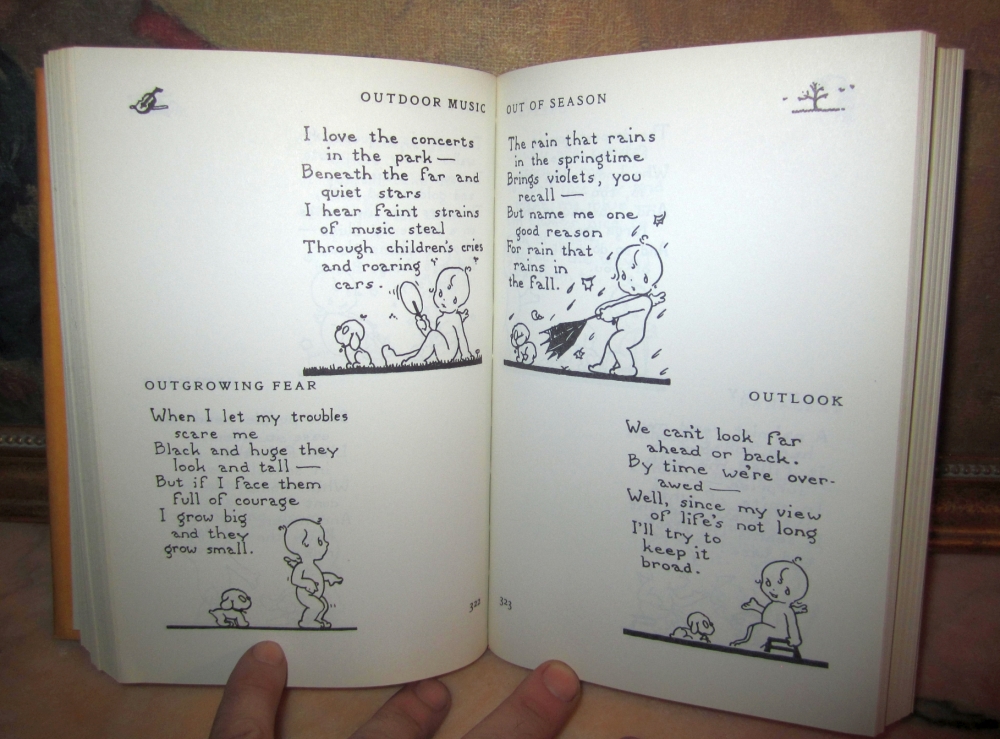 OUTDOOR MUSIC
I love the concerts
in the park —
Beneath the far and
quiet stars
I hear faint strains
of music steal
Through children's cries
and roaring
cars.
OUTGROWING FEAR
When I let my troubles
scare me
Black and huge they
look and tall —
But if I face them
full of courage
I grow big
and they
grow small.
322
OUT OF SEASON
The rain that rains
in the springtime
Brings violets, you
recall —
But name me one
good reason
For rain that
rains in
the fall.
OUTLOOK
We can't look far
ahead or back.
By time we're over-
awed —
Well, since my view
of life's not long
I'll try to
keep it
broad.
323